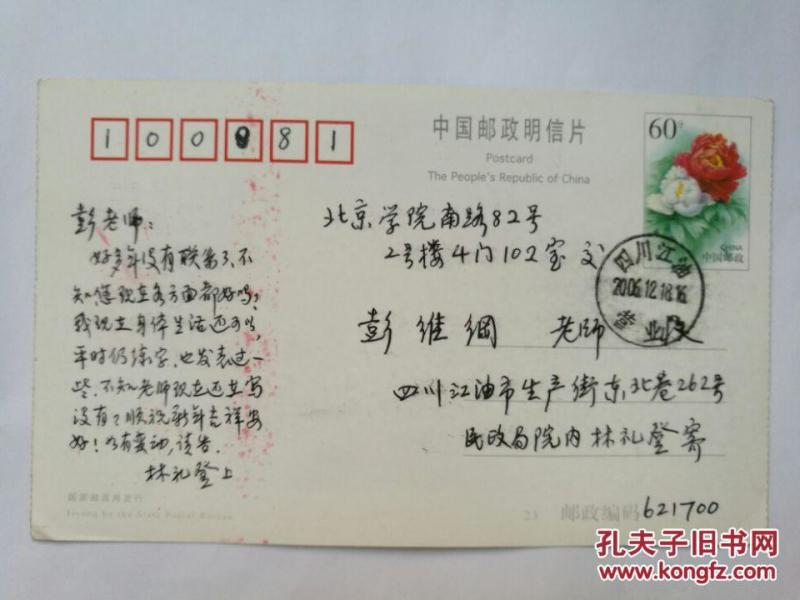 100081
中国邮政明信片
Postcard
The People's Republic of China
60分
CHINA
中国邮政
北京学院南路82号
2号楼4门102室 交
彭维纲 老师 收
四川江油市生产街东北巷262号
民政局院内林礼登寄
邮政编码 621700
彭老师:
好多年没有联系了,不
知您现在各方面都好吗?
我现在身体生活还可以,
平时仍练字,也发表过一
些。不知老师现在还在写
没有?顺祝新年吉祥安
好!如有变动,请告。
林礼登上
四川江油
2006.12.18.16
国家邮政局发行
Issued by the State Postal Bureau
23
孔夫子旧书网
www.kongfz.com